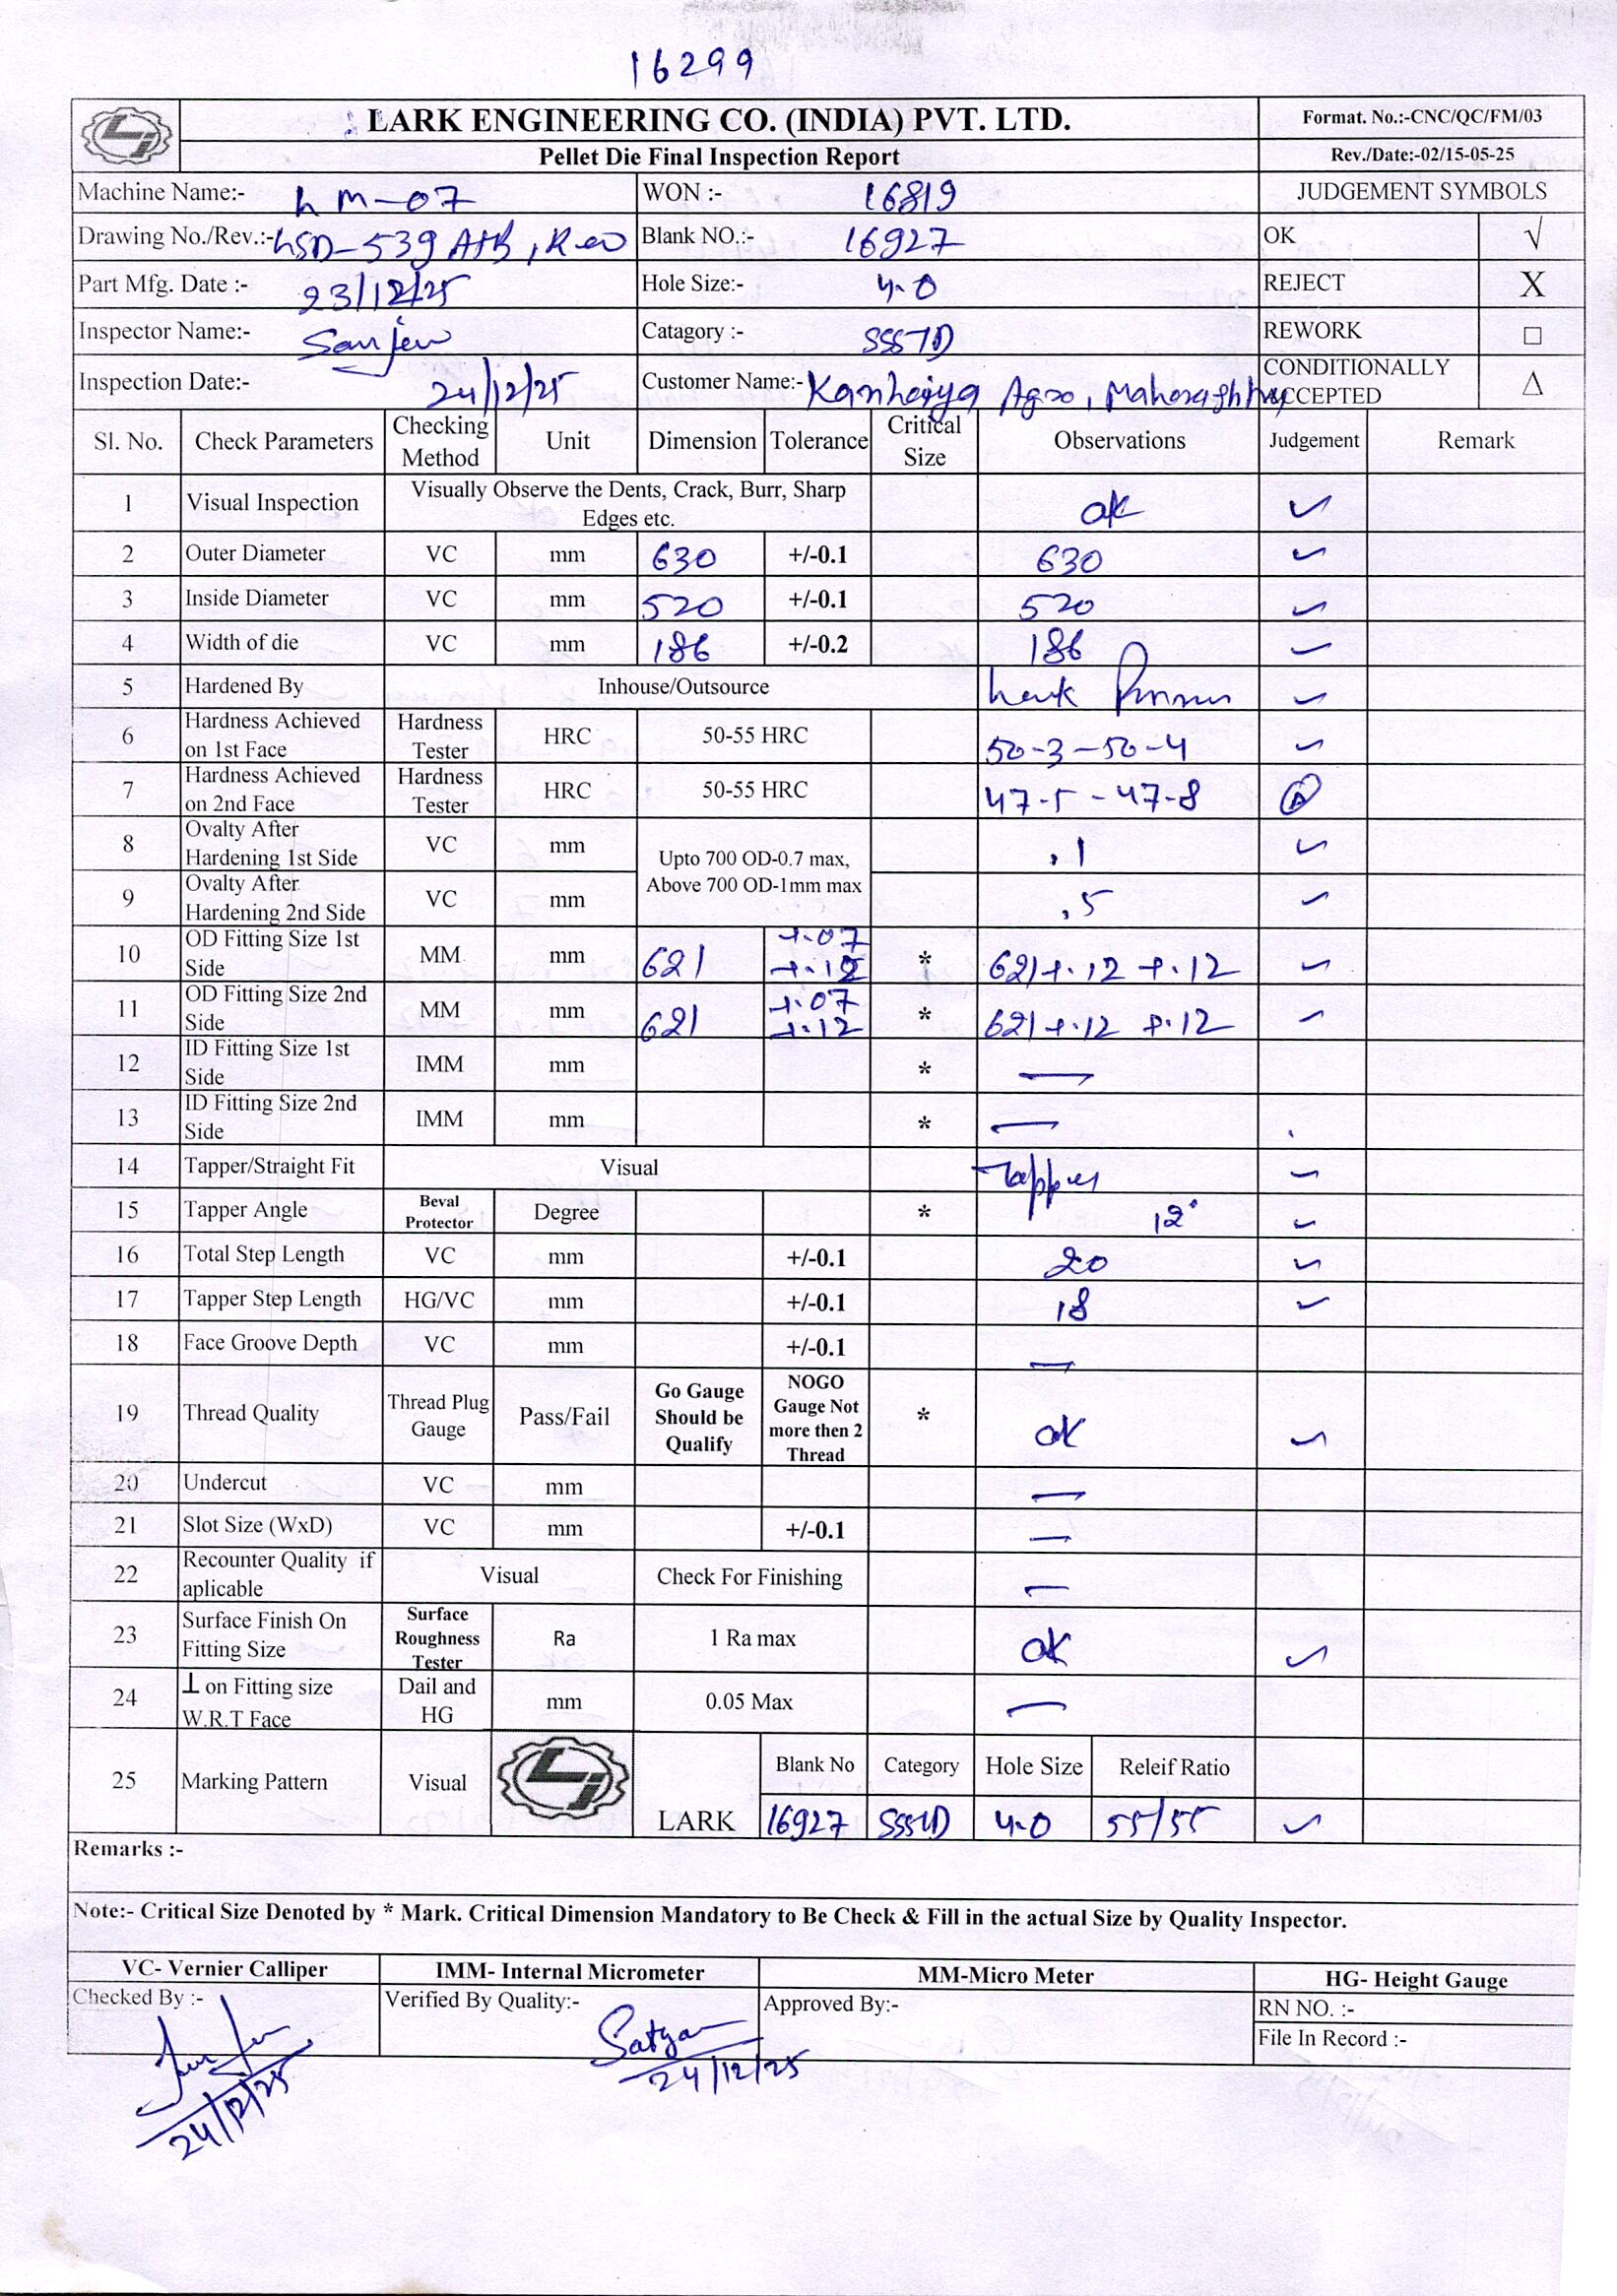 16299
LARK ENGINEERING CO. (INDIA) PVT. LTD.
Format. No.:-CNC/QC/FM/03
Pellet Die Final Inspection Report
Rev./Date:-02/15-05-25
Machine Name:- LM-07 WON :- 16819 JUDGEMENT SYMBOLS
Drawing No./Rev.:- LSD-539 A+B, Rev Blank NO.:- 16927 OK √
Part Mfg. Date :- 23/12/25 Hole Size:- 4.0 REJECT X
Inspector Name:- Sanjeev Catagory :- SSSTD REWORK □
Inspection Date:- 24/12/25 Customer Name:- Kanhaiya Agro, Maharashtra CONDITIONALLY ACCEPTED Δ
Sl. No. Check Parameters Checking Method Unit Dimension Tolerance Critical Size Observations Judgement Remark
1 Visual Inspection Visually Observe the Dents, Crack, Burr, Sharp Edges etc. ok ✓
2 Outer Diameter VC mm 630 +/-0.1 630 ✓
3 Inside Diameter VC mm 520 +/-0.1 520 ✓
4 Width of die VC mm 186 +/-0.2 186 ✓
5 Hardened By Inhouse/Outsource Lark ✓
6 Hardness Achieved on 1st Face Hardness Tester HRC 50-55 HRC 50-3-50-4 ✓
7 Hardness Achieved on 2nd Face Hardness Tester HRC 50-55 HRC 47-5-47-8 Δ
8 Ovalty After Hardening 1st Side VC mm Upto 700 OD-0.7 max, Above 700 OD-1mm max .1 ✓
9 Ovalty After Hardening 2nd Side VC mm .5 ✓
10 OD Fitting Size 1st Side MM mm 621 +.07 +.12 * 621+.12 +.12 ✓
11 OD Fitting Size 2nd Side MM mm 621 +.07 +.12 * 621+.12 +.12 ✓
12 ID Fitting Size 1st Side IMM mm * —
13 ID Fitting Size 2nd Side IMM mm * —
14 Tapper/Straight Fit Visual Tapper ✓
15 Tapper Angle Beval Protector Degree * 12° ✓
16 Total Step Length VC mm +/-0.1 20 ✓
17 Tapper Step Length HG/VC mm +/-0.1 18 ✓
18 Face Groove Depth VC mm +/-0.1 —
19 Thread Quality Thread Plug Gauge Pass/Fail Go Gauge Should be Qualify NOGO Gauge Not more then 2 Thread * ok ✓
20 Undercut VC mm —
21 Slot Size (WxD) VC mm +/-0.1 —
22 Recounter Quality if aplicable Visual Check For Finishing —
23 Surface Finish On Fitting Size Surface Roughness Tester Ra 1 Ra max ok ✓
24 ⊥ on Fitting size W.R.T Face Dail and HG mm 0.05 Max —
25 Marking Pattern Visual LARK Blank No Category Hole Size Releif Ratio
16927 SSSTD 4.0 55/55 ✓
Remarks :-
Note:- Critical Size Denoted by * Mark. Critical Dimension Mandatory to Be Check & Fill in the actual Size by Quality Inspector.
VC- Vernier Calliper IMM- Internal Micrometer MM-Micro Meter HG- Height Gauge
Checked By :- Verified By Quality:- Satyam Approved By:- RN NO. :-
File In Record :-
24/12/25 24/12/25